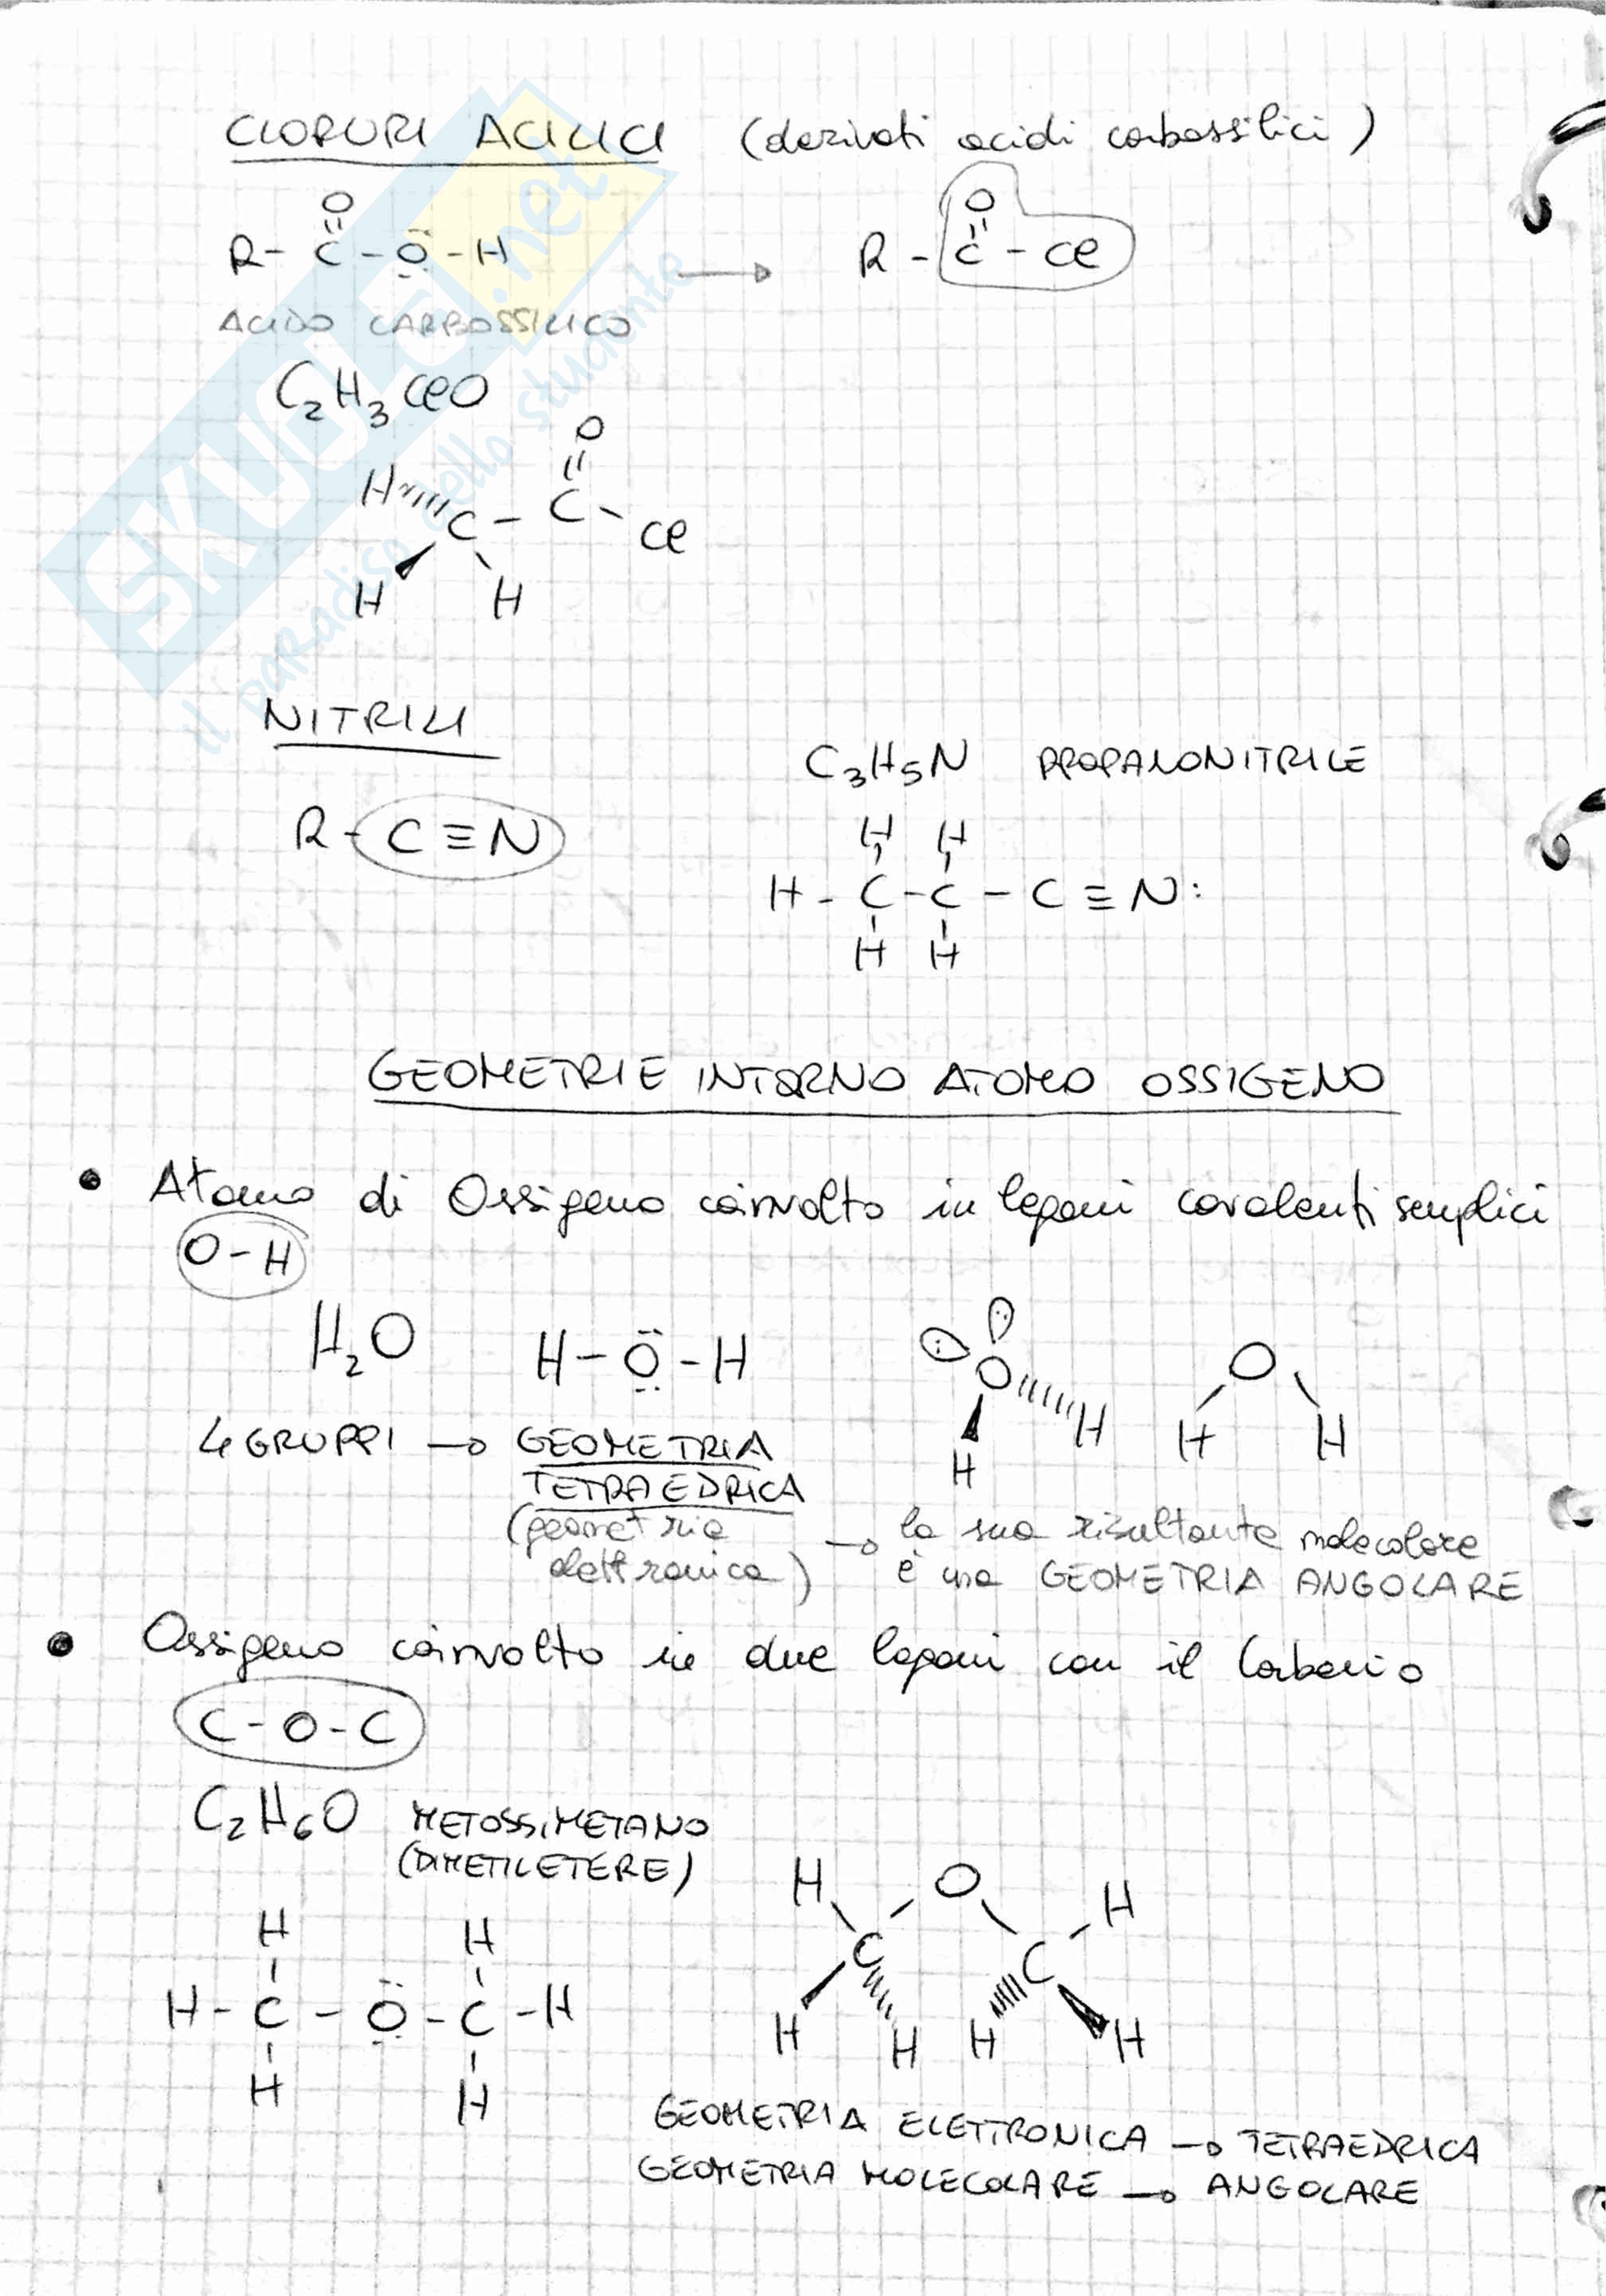 CLORURI ACILICI (derivati acidi carbossilici)
O
R - C - Ö - H → R - C - Cl
O
ACIDO CARBOSSILICO
C₂H₃ClO
O
H
C - C
Cl
H H
NITRILI
C₃H₅N PROPANONITRILE
R - C ≡ N
H H
H - C - C - C ≡ N:
H H
GEOMETRIE INTORNO ATOMO OSSIGENO
• Atomo di Ossigeno coinvolto in legami covalenti semplici
O - H
H₂O H - Ö - H
O H
H
O
H H
4 GRUPPI → GEOMETRIA
TETRAEDRICA
(geometria
elettronica) → la sua risultante molecolare
è una GEOMETRIA ANGOLARE
• Ossigeno coinvolto in due legami con il Carbonio
C - O - C
C₂H₆O METOSSIMETANO
(DIMETILETERE)
H H
H - C - Ö - C - H
H H
H O H
C C
H H H H
GEOMETRIA ELETTRONICA → TETRAEDRICA
GEOMETRIA MOLECOLARE → ANGOLARE
SKUOLA.net
il paradiso dello studente